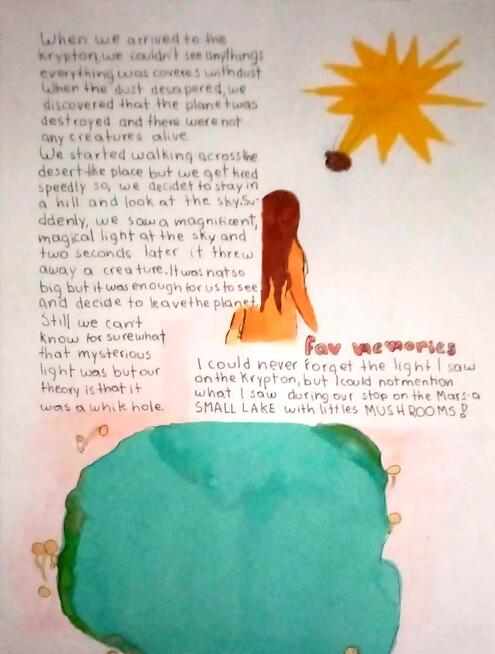 When we arrived to the
krypton, we couldn't see anythings
everything was coveres with dust
When the dust desapered, we
discovered that the planet was
destroyed and there were not
any creatures alive
We started walking across the
desert-like place but we get tired
speedly so, we decidet to stay in
a hill and look at the sky. Su-
ddenly, we saw a magnificent,
magical light at the sky and
two seconds later it threw
away a creature. It was not so
big but it was enough for us to see
and decide to leave the planet.
Still we can't
know for sure what
that mysterious
light was but our
theory is that it
was a white hole.
fav memories
I could never forget the light I saw
on the Krypton, but I could not mention
what I saw during our stop on the Mars-a
SMALL LAKE with littles MUSHROOMS!